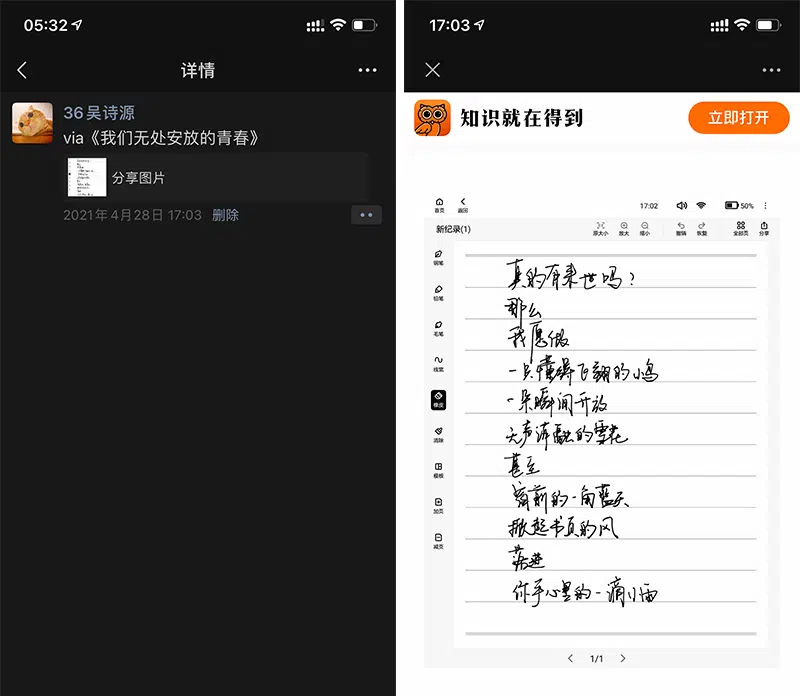 05:32
详情
36吴诗源
via《我们无处安放的青春》
分享图片
2021年4月28日 17:03 删除
17:03
知识就在得到
立即打开
首页 返回 17:02 50%
新纪录(1) 原大小 放大 缩小 撤销 恢复 全部页 分享
钢笔
铅笔
毛笔
线宽
橡皮
清除
模板
加页
减页
真的有来世吗?
那么
我愿做
一只懂得飞翔的小鸟
一朵瞬间开放
无声消融的雪花
甚至
窗前的一角蓝天
掀起书页的风
落进
你手心里的一滴小雨
1/1